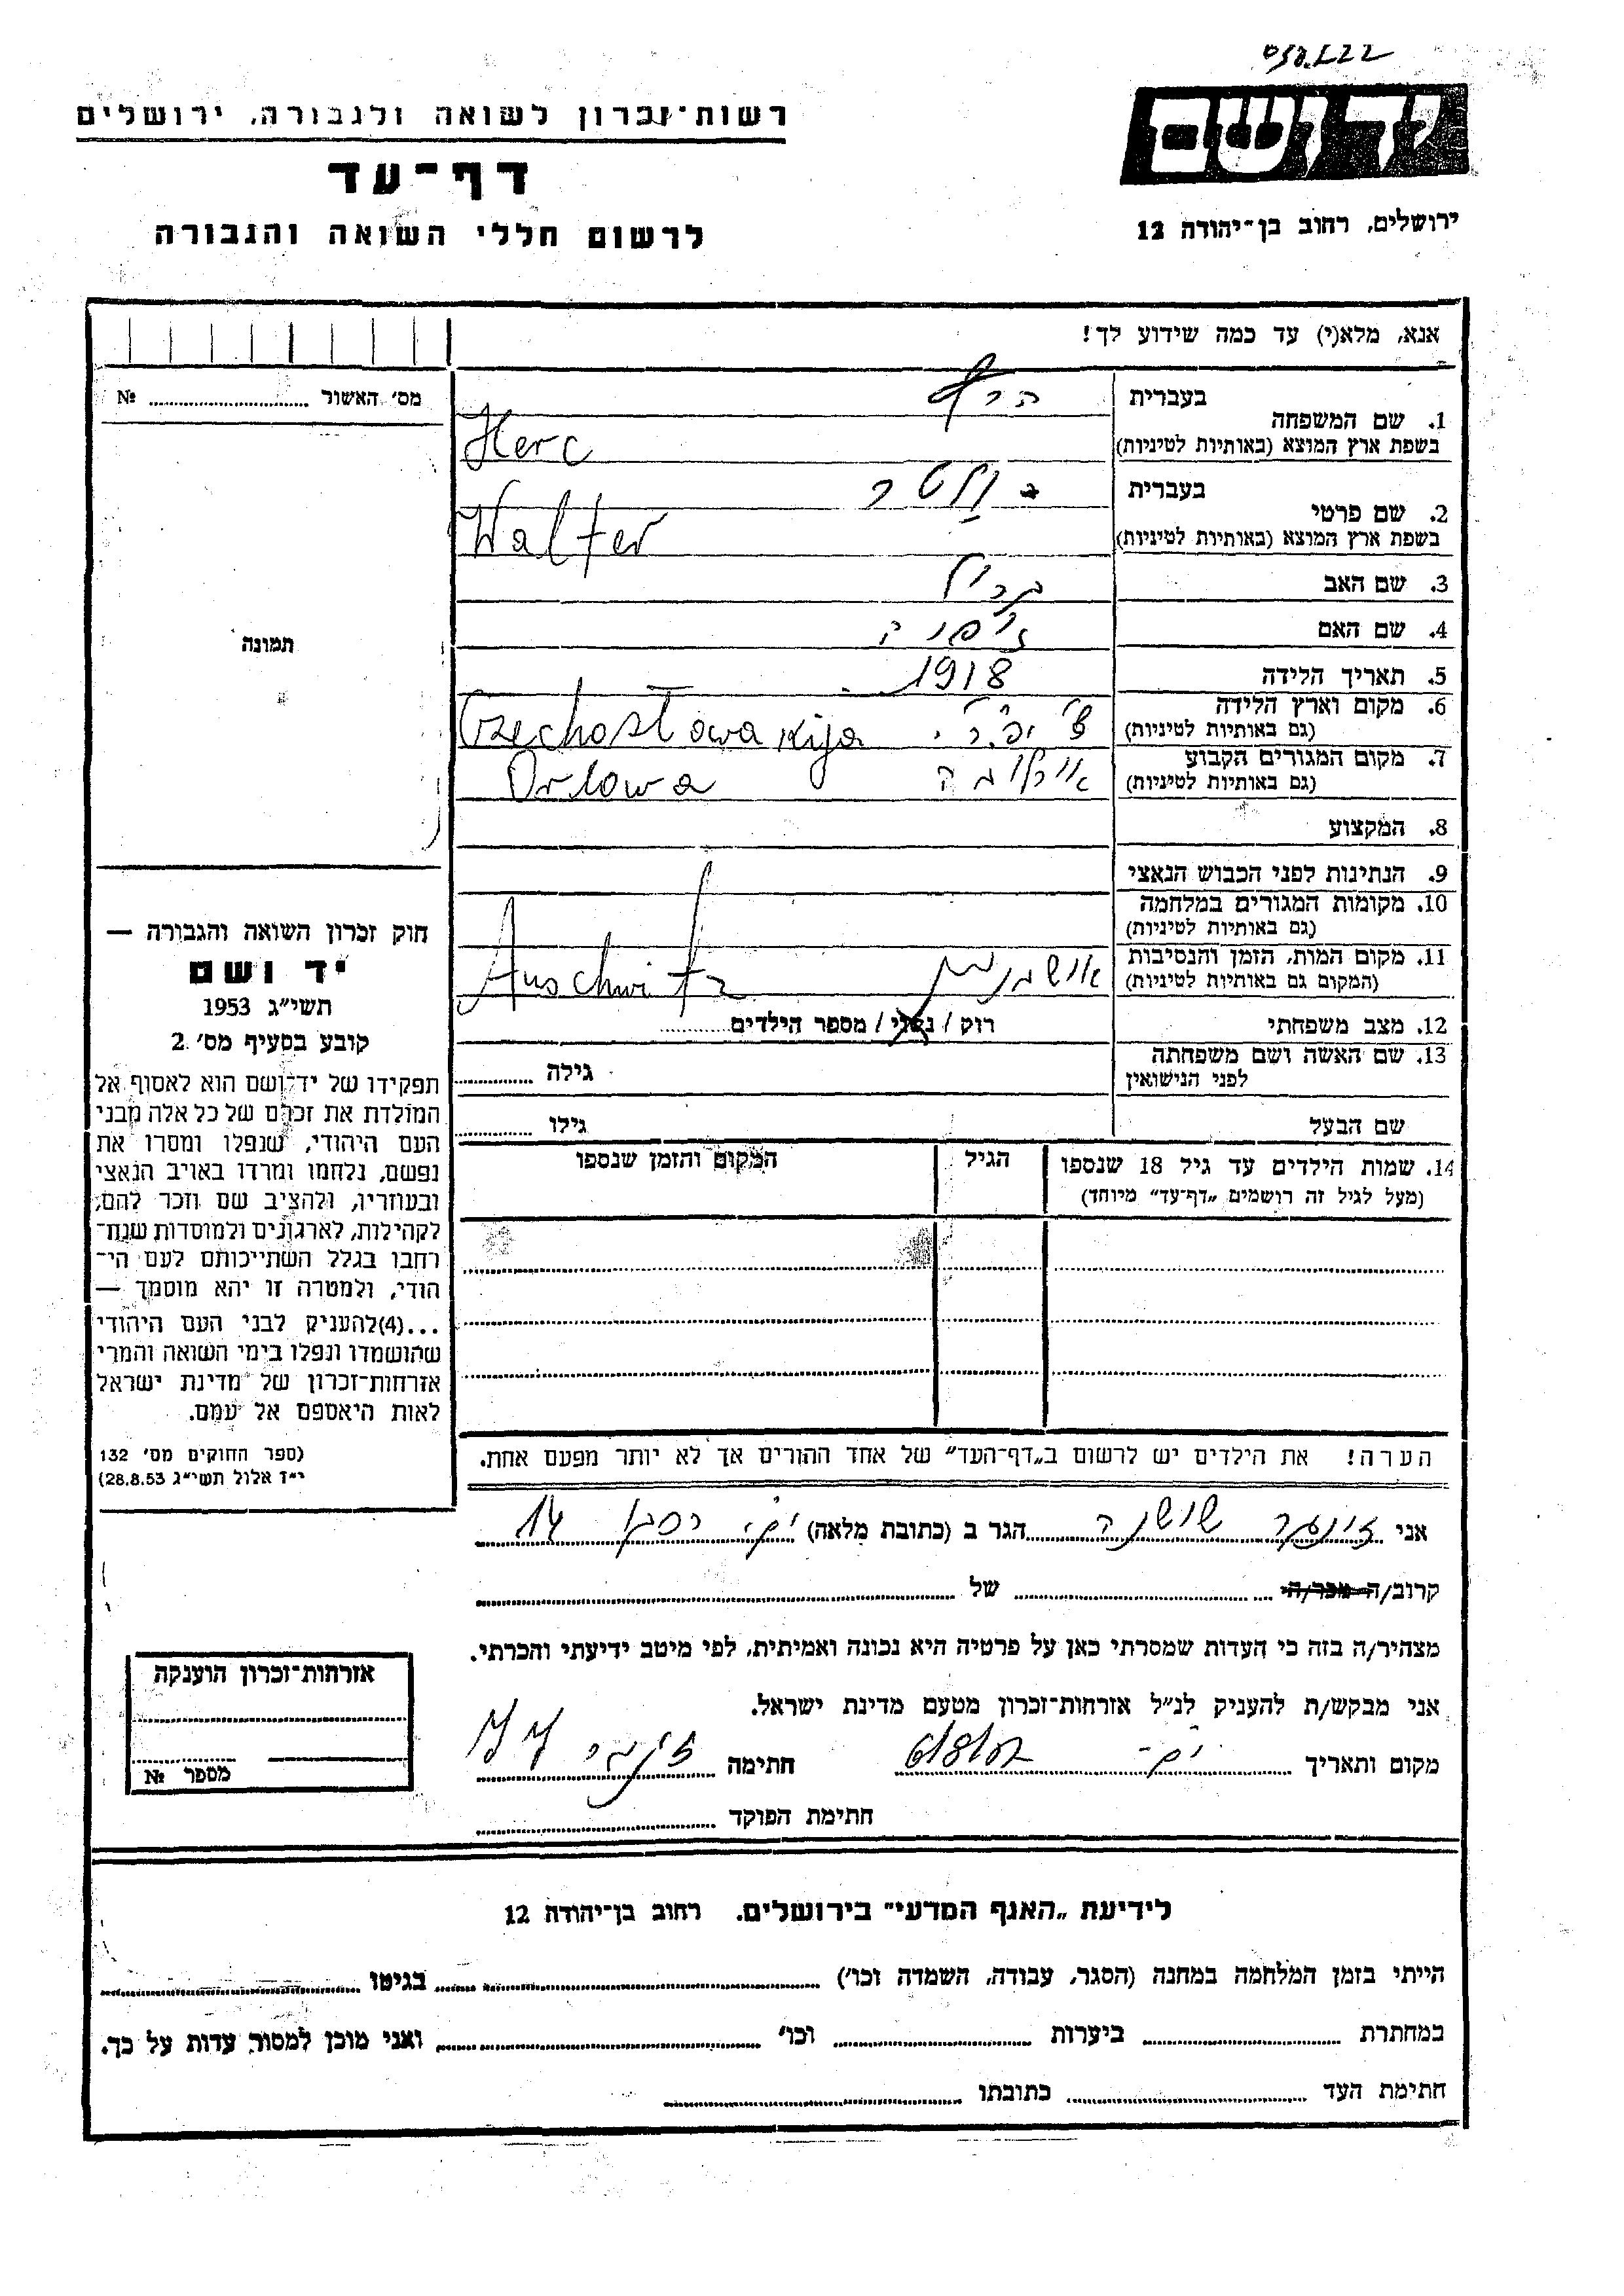 יד ושם
ירושלים, רחוב בן־יהודה 12
רשות־זכרון לשואה ולגבורה, ירושלים
דף־עד
לרשום חללי השואה והגבורה
אנא, מלא(י) עד כמה שידוע לך!
מס׳ האשור № 
בעברית הרץ
1. שם המשפחה
בשפת ארץ המוצא (באותיות לטיניות) Herc
בעברית ולטר
2. שם פרטי
בשפת ארץ המוצא (באותיות לטיניות) Walter
3. שם האב
4. שם האם
5. תאריך הלידה 1918
6. מקום וארץ הלידה
(גם באותיות לטיניות) Czechosłowakija
7. מקום המגורים הקבוע
(גם באותיות לטיניות) אורלובה Orlowa
8. המקצוע
9. הנתינות לפני הכבוש הנאצי
10. מקומות המגורים במלחמה
(גם באותיות לטיניות)
11. מקום המות, הזמן והנסיבות
(המקום גם באותיות לטיניות) אושוויץ Auschwitz
12. מצב משפחתי רוק / נשוי / מספר הילדים
13. שם האשה ושם משפחתה
לפני הנישואין גילה
שם הבעל גילו
14. שמות הילדים עד גיל 18 שנספו הגיל המקום והזמן שנספו
(מעל לגיל זה רושמים „דף־עד״ מיוחד)
תמונה
חוק זכרון השואה והגבורה —
יד ושם
תשי״ג 1953
קובע בסעיף מס׳ 2
תפקידו של יד־ושם הוא לאסוף אל
המולדת את זכרם של כל אלה מבני
העם היהודי, שנפלו ומסרו את
נפשם, נלחמו ומרדו באויב הנאצי
ובעוזריו, ולהציב שם וזכר להם,
לקהילות, לארגונים ולמוסדות שנח־
רבו בגלל השתייכותם לעם הי־
הודי, ולמטרה זו יהא מוסמך —
...(4)להעניק לבני העם היהודי
שהושמדו ונפלו בימי השואה והמרי
אזרחות־זכרון של מדינת ישראל
לאות היאספם אל עמם.
(ספר החוקים מס׳ 132
י״ז אלול תשי״ג 28.8.53)
הערה! את הילדים יש לרשום ב„דף־העד״ של אחד ההורים אך לא יותר מפעם אחת.
אני זינגר שושנה הגר ב (כתובת מלאה) 14
קרוב/ה מכר/ה של
מצהיר/ה בזה כי העדות שמסרתי כאן על פרטיה היא נכונה ואמיתית, לפי מיטב ידיעתי והכרתי.
אני מבקש/ת להעניק לנ״ל אזרחות־זכרון מטעם מדינת ישראל.
מקום ותאריך חתימה
חתימת הפוקד
אזרחות־זכרון הוענקה
מספר №
לידיעת „האגף המדעי״ בירושלים, רחוב בן־יהודה 12
הייתי בזמן המלחמה במחנה (הסגר, עבודה, השמדה וכו׳) בגיטו
במחתרת ביערות וכו׳ ואני מוכן למסור עדות על כך.
חתימת העד כתובתו